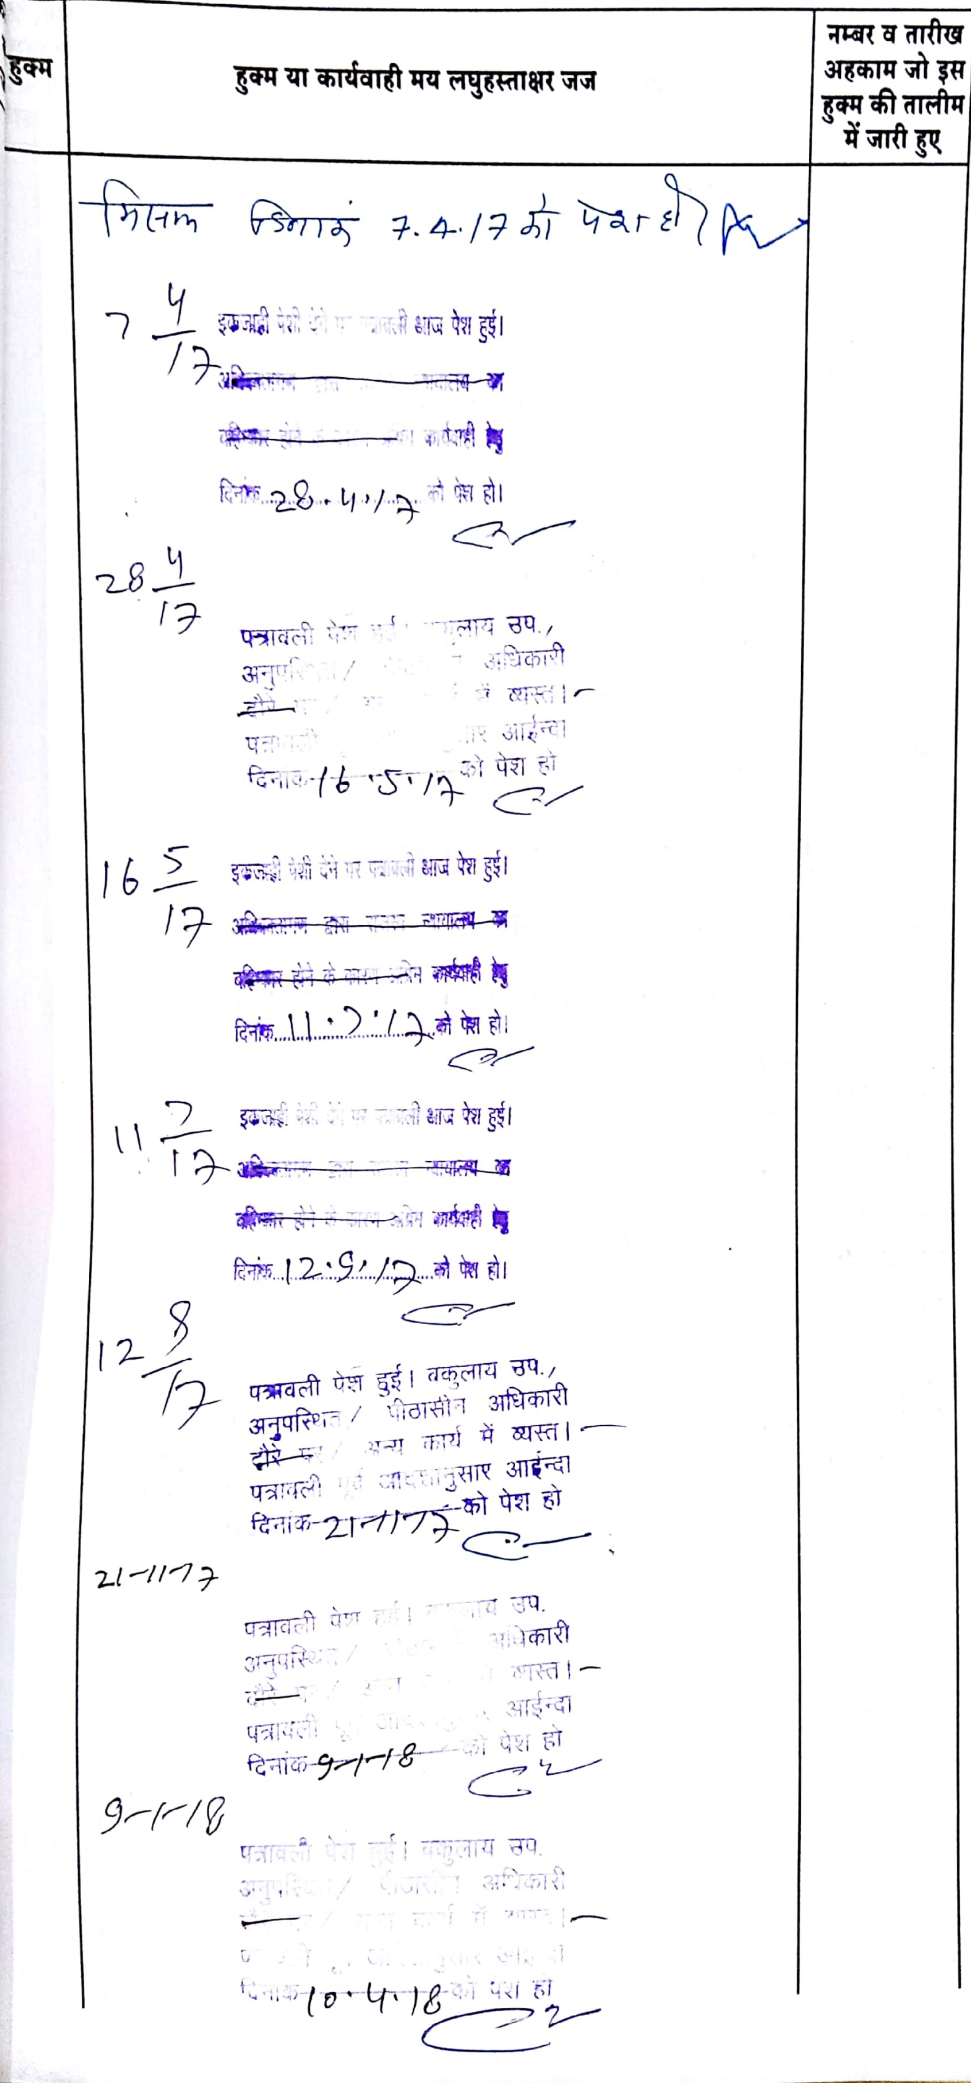 हुक्म
हुक्म या कार्यवाही मय लघुहस्ताक्षर जज
नम्बर व तारीख
अहकाम जो इस
हुक्म की तालीम
में जारी हुए
मिसल दिनांक 7.4.17 को पेश हो
7 4/17
इकजाही पेशी देने पर पत्रावली आज पेश हुई।
न्यायालय का
कार्यवाही हेतु
दिनांक 28.4.17 को पेश हो।
28 4/17
पत्रावली पेश हुई। वकुलाय उप.,
अनुपस्थित / अधिकारी
दौरे पर / में व्यस्त।
पत्रावली आईन्दा
दिनांक 16.5.17 को पेश हो
16 5/17
इकजाही पेशी देने पर पत्रावली आज पेश हुई।
अभिभाषकगण द्वारा राजस्व न्यायालय का
बहिष्कार होने के कारण अग्रिम कार्यवाही हेतु
दिनांक 11.7.17 को पेश हो।
11 7/17
इकजाही पेशी देने पर पत्रावली आज पेश हुई।
द्वारा न्यायालय का
बहिष्कार होने के कारण अग्रिम कार्यवाही हेतु
दिनांक 12.9.17 को पेश हो।
12 9/17
पत्रावली पेश हुई। वकुलाय उप.,
अनुपस्थित / पीठासीन अधिकारी
दौरे पर / अन्य कार्य में व्यस्त।
पत्रावली पूर्व आदेशानुसार आईन्दा
दिनांक 21-11-17 को पेश हो
21-11-17
पत्रावली पेश हुई। वकुलाय उप.
अनुपस्थित / अधिकारी
दौरे पर / अन्य व्यस्त।
पत्रावली पूर्व आईन्दा
दिनांक 9-1-18 को पेश हो
9-1-18
पत्रावली पेश हुई। वकुलाय उप.
अनुपस्थित / पीठासीन अधिकारी
कार्य में व्यस्त।
दिनांक 10.4.18 को पेश हो